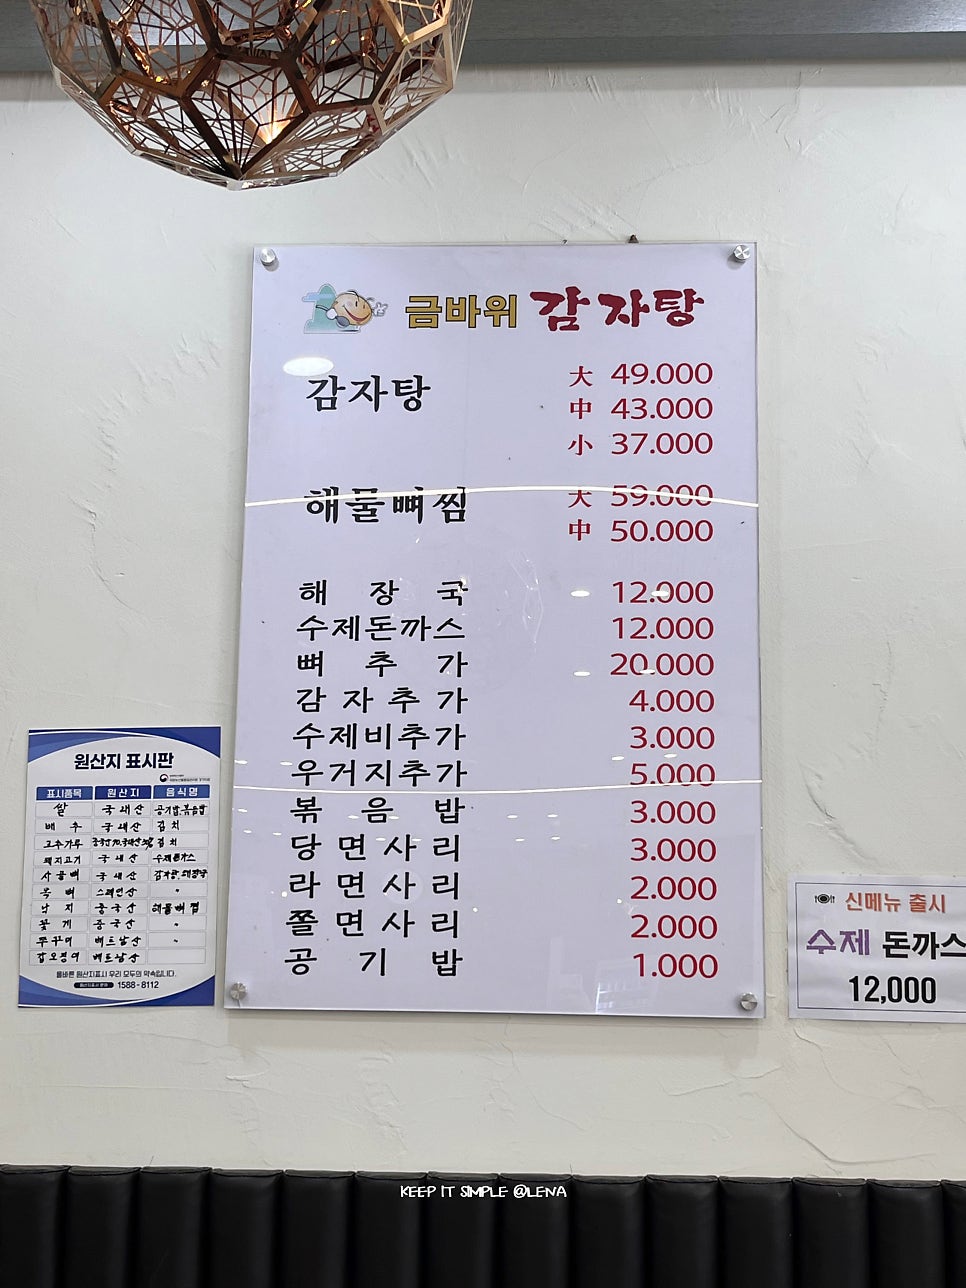 금바위 감자탕
감자탕 大 49.000
中 43.000
小 37.000
해물뼈찜 大 59.000
中 50.000
해장국 12.000
수제돈까스 12.000
뼈추가 20.000
감자추가 4.000
수제비추가 3.000
우거지추가 5.000
볶음밥 3.000
당면사리 3.000
라면사리 2.000
쫄면사리 2.000
공기밥 1.000
원산지 표시판
표시품목 원산지 음식명
쌀 국내산 공기밥.볶음밥
배추 국내산 김치
고추가루 김치
돼지고기 국내산 수제돈가스
사골뼈 국내산 감자탕.해장국
목뼈 스페인산 "
낙지 중국산 해물뼈찜
꽃게 중국산 "
쭈꾸미 베트남산 "
갑오징어 베트남산
올바른 원산지표시 우리 모두의 약속입니다.
원산지표시 문의 1588-8112
신메뉴 출시
수제 돈까스
12,000
KEEP IT SIMPLE @LENA